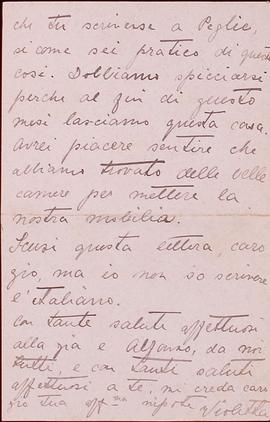 che tu scrivesse a Peglio,
si come sei pratico di queste
cose. Dobbiamo spicciarsi
perche al fin di questo
mese lasciamo questa casa.
Avrei piacere sentire che
abbiamo trovato delle belle
camere per mettere la
nostra mobilia.
Scusi questa lettera, caro
zio, ma io non so scrivere
l'italiano.
Con tante saluti affettuosi
alla zia e Alfonzo, da noi
tutti, e con tanti saluti
affettuosi a te, mi creda caro
zio tua aff.ma nipote Violetta